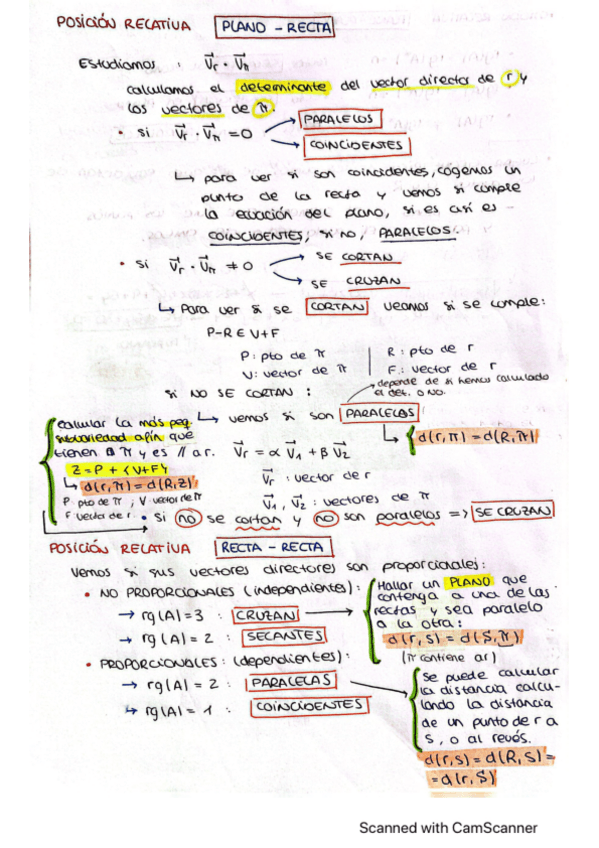 POSICIÓN RELATIVA PLANO - RECTA
Estudiamos : V⃗r · V⃗π
calculamos el determinante del vector director de r y
los vectores de π.
• si V⃗r · V⃗π = 0 PARALELOS
COINCIDENTES
↳ para ver si son coincidentes, cogemos un
punto de la recta y vemos si cumple
la ecuación del plano, si es así es
COINCIDENTES, si no, PARALELOS.
• si V⃗r · V⃗π ≠ 0 SE CORTAN
SE CRUZAN
↳ Para ver si se CORTAN veamos si se cumple:
P-R ∈ V+F
P: pto de π | R: pto de r
V: vector de π | F: vector de r
si NO SE CORTAN :
depende de si hemos calculado
el det. o no.
↳ vemos si son PARALELOS
↳ d(r,π) = d(R,π)
V⃗r = α V⃗1 + β V⃗2
V⃗r : vector de r
V⃗1, V⃗2 : vectores de π
calcular la más peq.
subvariedad afín que
tienen a π y es // a r.
Z = P + {V+F}
↳ d(r,π) = d(R,Z)
P pto de π ; V vector de π
F vector de r
• si no se cortan y no son paralelos => SE CRUZAN
POSICIÓN RELATIVA RECTA - RECTA
Vemos si sus vectores directores son proporcionales:
• NO PROPORCIONALES (independientes):
→ rg(A)=3 : CRUZAN
→ rg(A)=2 : SECANTES
Hallar un PLANO que
contenga a una de las
rectas y sea paralelo
a la otra:
d(r,s) = d(S,π)
(π contiene a r)
• PROPORCIONALES: (dependientes):
→ rg(A)=2 : PARALELAS
↳ rg(A)=1 : COINCIDENTES
se puede calcular
la distancia calcu-
lando la distancia
de un punto de r a
s, o al revés.
d(r,s) = d(R,s) =
= d(r,S)
Scanned with CamScanner